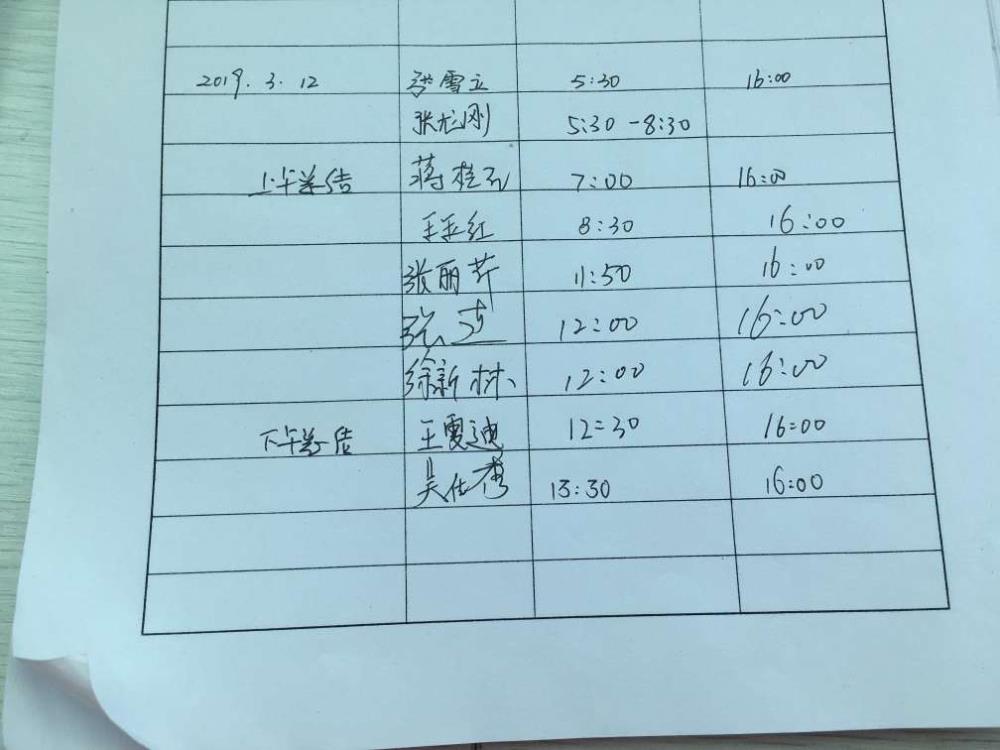 2019.3.12 张雪立 5:30 16:00
张龙刚 5:30-8:30
上午 蒋桂 7:00 16:00
王玉红 8:30 16:00
张丽芹 11:50 16:00
张 12:00 16:00
徐新林 12:00 16:00
下午 王雯迪 12:30 16:00
吴仕秀 13:30 16:00